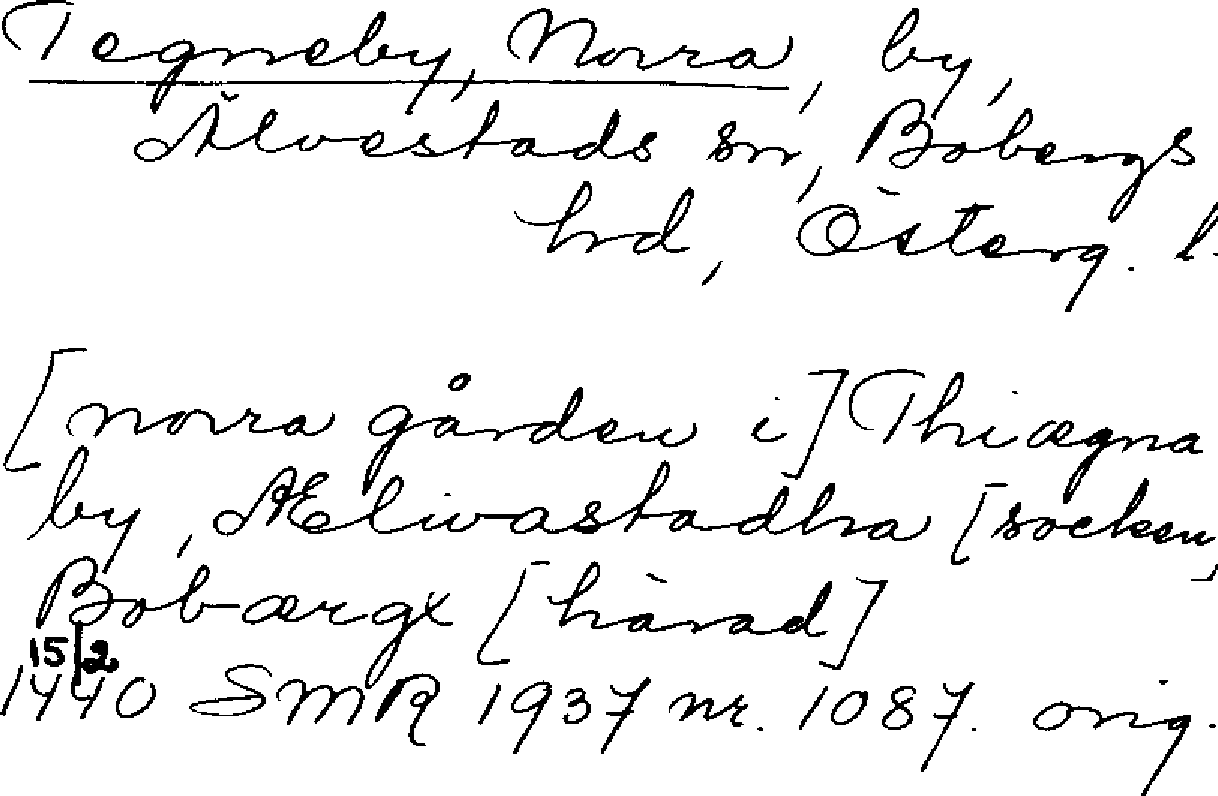 Tegneby, Norra, by,
Älvestads sn, Bobergs
hrd, Österg. l.
[norra gården i] Thiægna
by, Ælivastadha [socken,
Bobærgx [härad]
15/2
1440 SMR 1937 nr. 1087. orig.